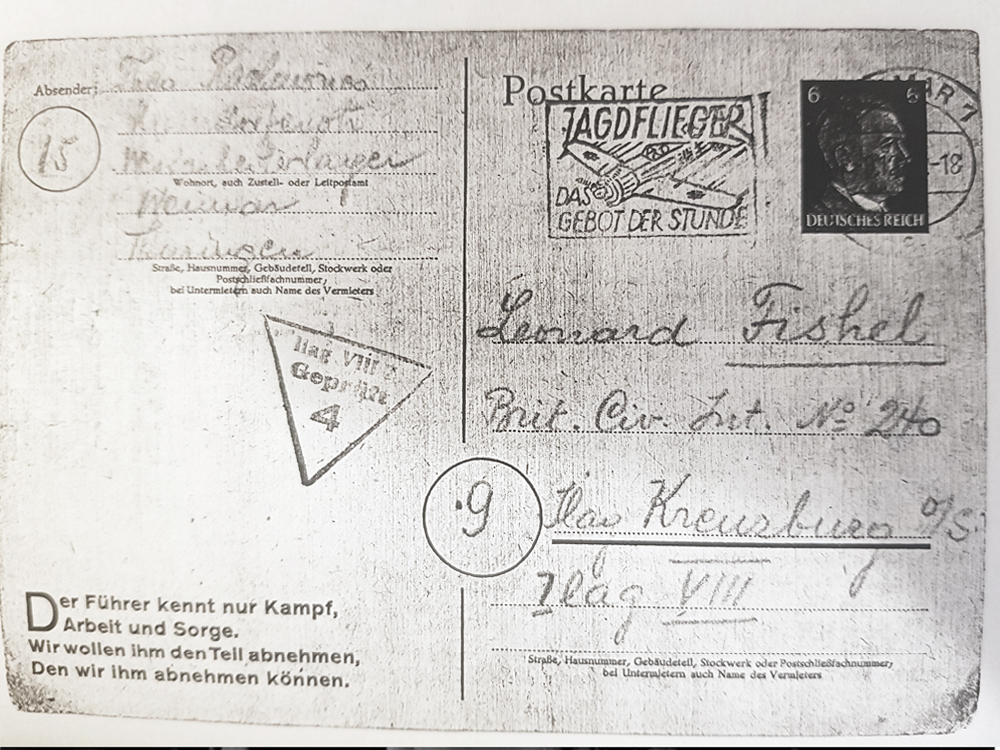 Absender:
15
Wohnort, auch Zustell- oder Leitpostamt
Weimar
Thüringen
Straße, Hausnummer, Gebäudeteil, Stockwerk oder
Postschließfachnummer,
bei Untermietern auch Name des Vermieters
Postkarte
JAGDFLIEGER
DAS
GEBOT DER STUNDE
6 6
DEUTSCHES REICH
-18
Ilag VIII
Geprüft
4
Leonard Fishel
Brit. Civ. Int. No 240
9
Ilag Kreuzburg O/S.
Ilag VIII
Straße, Hausnummer, Gebäudeteil, Stockwerk oder Postschließfachnummer,
bei Untermietern auch Name des Vermieters
Der Führer kennt nur Kampf,
Arbeit und Sorge.
Wir wollen ihm den Teil abnehmen,
Den wir ihm abnehmen können.